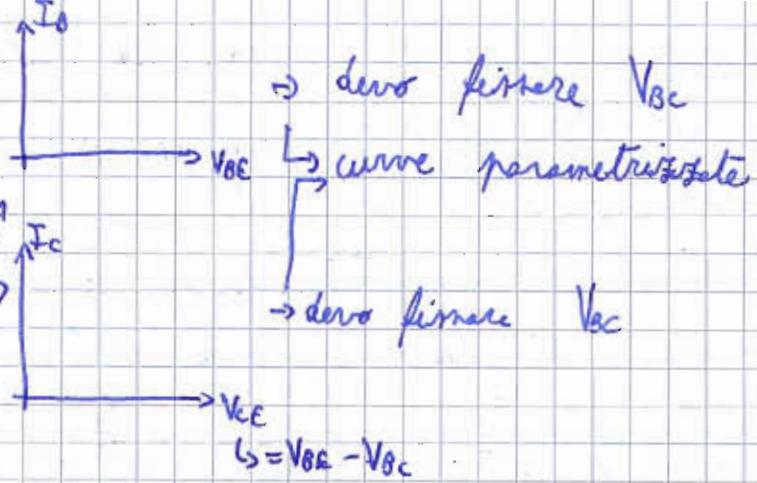 I_B
→ devo fissare V_BC
V_BE
↳ curve parametrizzate
I_C
→ devo fissare V_BC
V_CE
↳ = V_BE - V_BC